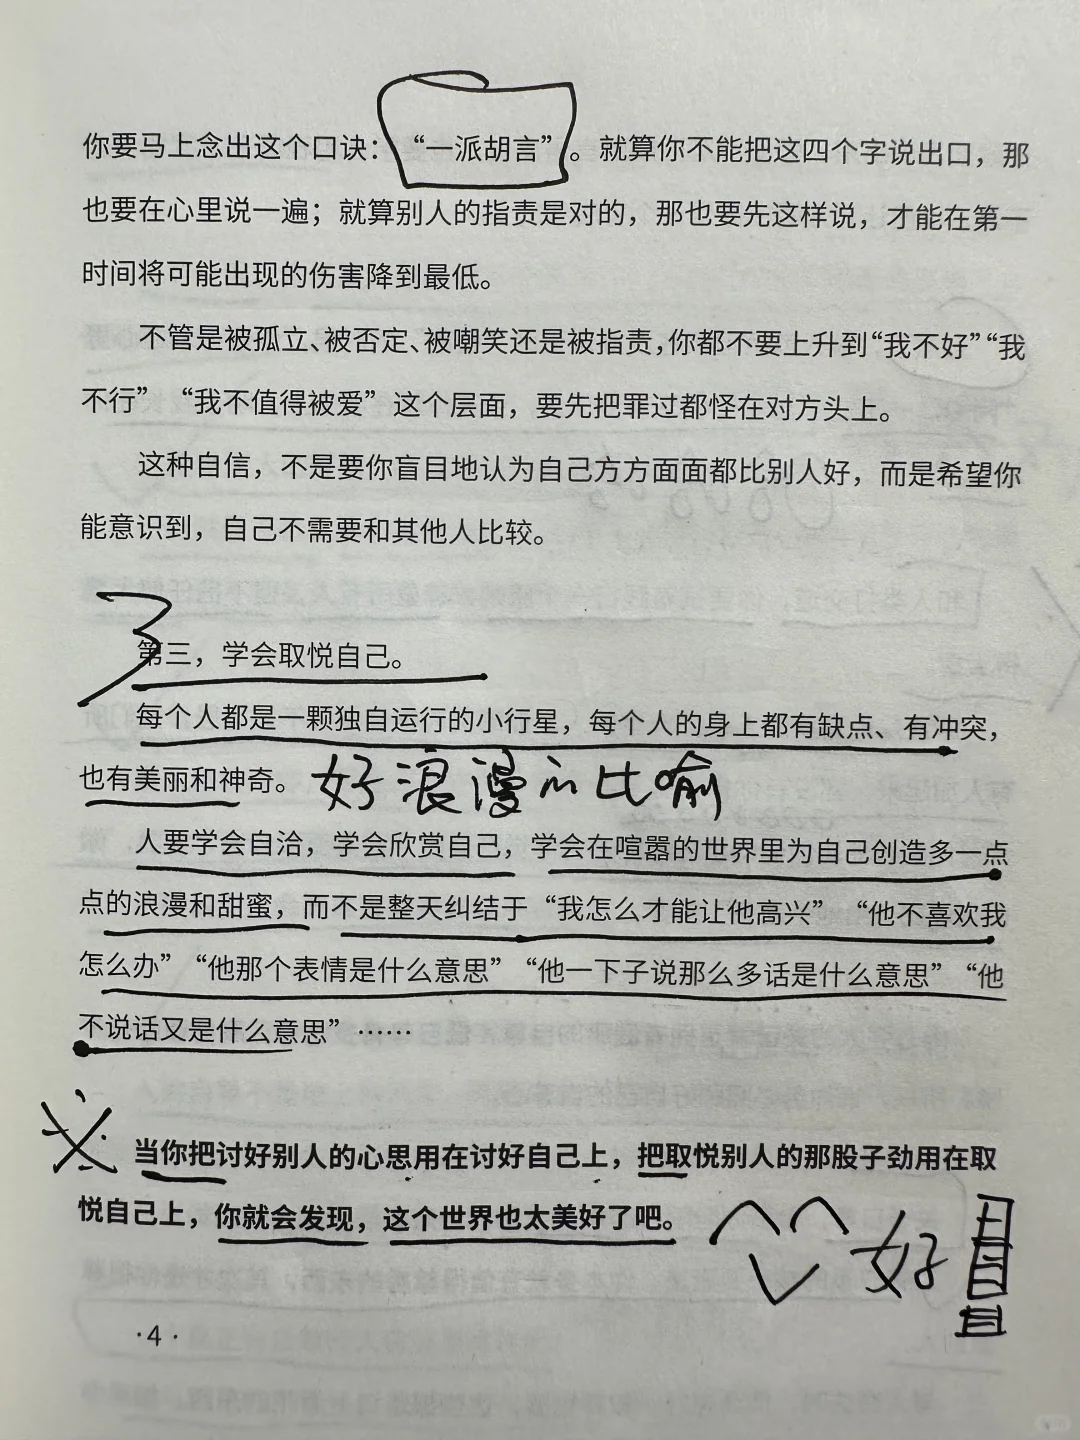 你要马上念出这个口诀：“一派胡言”。就算你不能把这四个字说出口，那
也要在心里说一遍；就算别人的指责是对的，那也要先这样说，才能在第一
时间将可能出现的伤害降到最低。
不管是被孤立、被否定、被嘲笑还是被指责，你都不要上升到“我不好”“我
不行”“我不值得被爱”这个层面，要先把罪过都怪在对方头上。
这种自信，不是要你盲目地认为自己方方面面都比别人好，而是希望你
能意识到，自己不需要和其他人比较。
3
第三，学会取悦自己。
每个人都是一颗独自运行的小行星，每个人的身上都有缺点、有冲突，
也有美丽和神奇。 好浪漫的比喻
人要学会自洽，学会欣赏自己，学会在喧嚣的世界里为自己创造多一点
点的浪漫和甜蜜，而不是整天纠结于“我怎么才能让他高兴”“他不喜欢我
怎么办”“他那个表情是什么意思”“他一下子说那么多话是什么意思”“他
不说话又是什么意思”……
当你把讨好别人的心思用在讨好自己上，把取悦别人的那股子劲用在取
悦自己上，你就会发现，这个世界也太美好了吧。
好
·4·